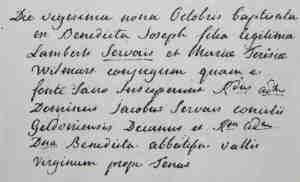 Die vigesima nona Octobris baptisata
est Benedicta Joseph filia legitima
Lamberti Servais et Mariæ Teresiæ
Wilmars conjugum quam e
fonte Sacro Susceperunt Rdus adm
Dominus Jacobus Servais concilii
Geldoniensis Decanus et Rma adm
Dna Benedicta abbatissa vallis
Virginum prope Tenas